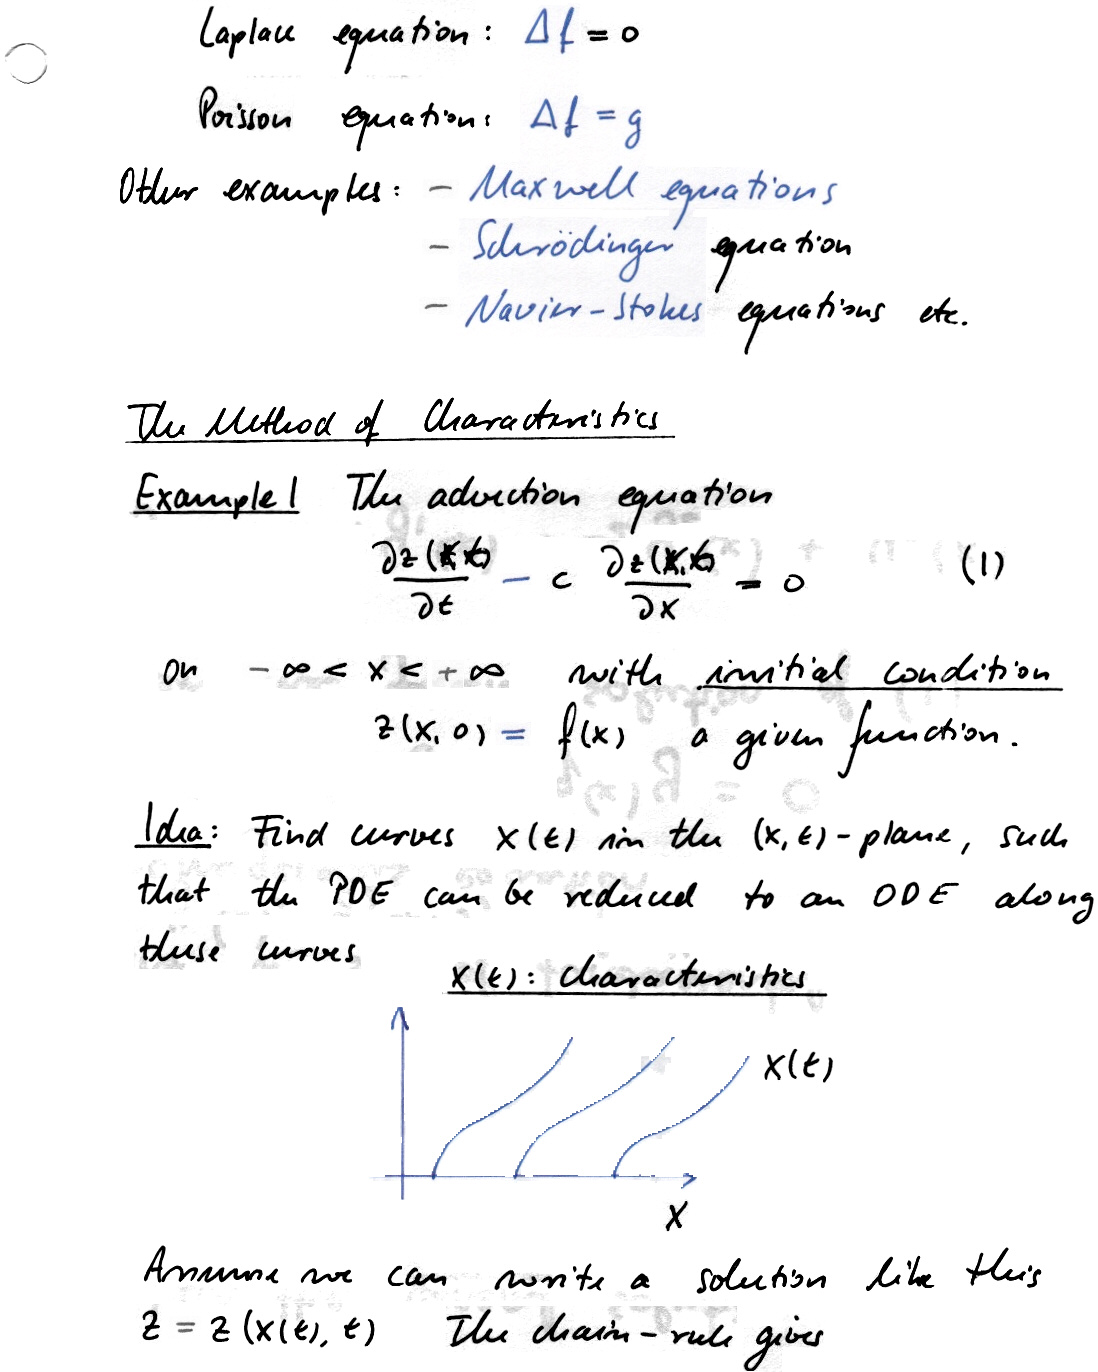 Laplace equation: Δf = 0
Poisson equation: Δf = g
Other examples: - Maxwell equations
- Schrödinger equation
- Navier-Stokes equations etc.
The Method of Characteristics
Example 1 The advection equation
∂z(x,t)/∂t - c ∂z(x,t)/∂x = 0 (1)
on -∞ < x < +∞ with initial condition
z(x,0) = f(x) a given function.
Idea: Find curves x(t) in the (x,t)-plane, such
that the PDE can be reduced to an ODE along
these curves
x(t): characteristics
x(t)
x
Assume we can write a solution like this
z = z(x(t), t) The chain-rule gives